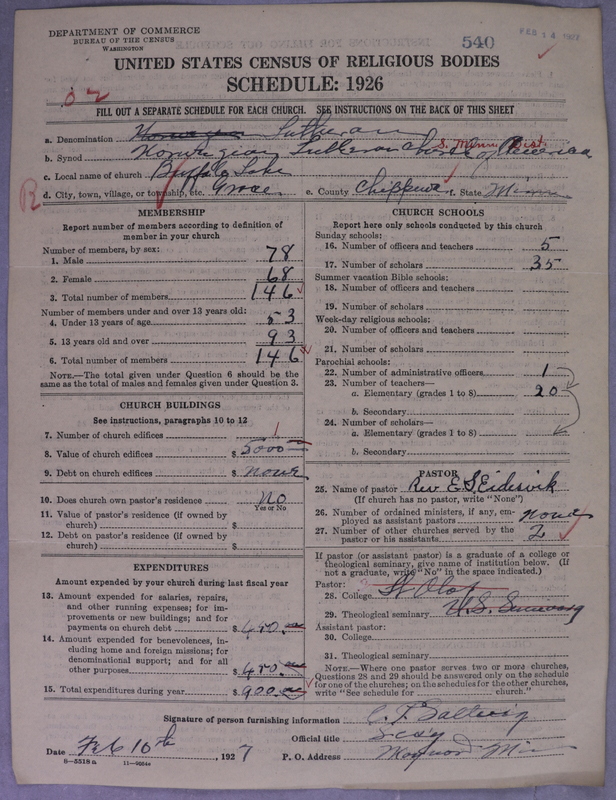 DEPARTMENT OF COMMERCE
BUREAU OF THE CENSUS
WASHINGTON
540
FEB 14 1927
UNITED STATES CENSUS OF RELIGIOUS BODIES
SCHEDULE: 1926
FILL OUT A SEPARATE SCHEDULE FOR EACH CHURCH. SEE INSTRUCTIONS ON THE BACK OF THIS SHEET
a. Denomination Norwegian Lutheran
S. Minn. Dist.
b. Synod Norwegian Lutheran Church of America
c. Local name of church Buffalo Lake
R
d. City, town, village, or township, etc. Grace e. County Chippewa f. State Minn
MEMBERSHIP
Report number of members according to definition of member in your church
Number of members, by sex:
1. Male 78
2. Female 68
3. Total number of members 146
Number of members under and over 13 years old:
4. Under 13 years of age 53
5. 13 years old and over 93
6. Total number of members 146
NOTE.—The total given under Question 6 should be the
same as the total of males and females given under Question 3.
CHURCH BUILDINGS
See instructions, paragraphs 10 to 12
7. Number of church edifices 1
8. Value of church edifices $ 5000
9. Debt on church edifices $ none
10. Does church own pastor's residence No
Yes or No
11. Value of pastor's residence (if owned by
church) $
12. Debt on pastor's residence (if owned by
church) $
EXPENDITURES
Amount expended by your church during last fiscal year
13. Amount expended for salaries, repairs,
and other running expenses; for im-
provements or new buildings; and for
payments on church debt $
14. Amount expended for benevolences, in-
cluding home and foreign missions; for
denominational support; and for all
other purposes $
15. Total expenditures during year $ 900.00
CHURCH SCHOOLS
Report here only schools conducted by this church
Sunday schools:
16. Number of officers and teachers 5
17. Number of scholars 35
Summer vacation Bible schools:
18. Number of officers and teachers
19. Number of scholars
Week-day religious schools:
20. Number of officers and teachers
21. Number of scholars
Parochial schools:
22. Number of administrative officers 1
23. Number of teachers—
a. Elementary (grades 1 to 8) 20
b. Secondary
24. Number of scholars—
a. Elementary (grades 1 to 8)
b. Secondary
PASTOR
25. Name of pastor Rev E S Eidesvik
(If church has no pastor, write "None")
26. Number of ordained ministers, if any, em-
ployed as assistant pastors none
27. Number of other churches served by the
pastor or his assistants 2
If pastor (or assistant pastor) is a graduate of a college or
theological seminary, give name of institution below. (If
not a graduate, write "No" in the space indicated.)
Pastor:
28. College St Olaf
29. Theological seminary
Assistant pastor:
30. College
31. Theological seminary
NOTE.—Where one pastor serves two or more churches,
Questions 28 and 29 should be answered only on the schedule
for one of the churches; on the schedules for the other churches,
write "See schedule for church."
Signature of person furnishing information
Official title Secy
Date Feb 10th, 1927 P. O. Address Maynard Minn
8—5518 a